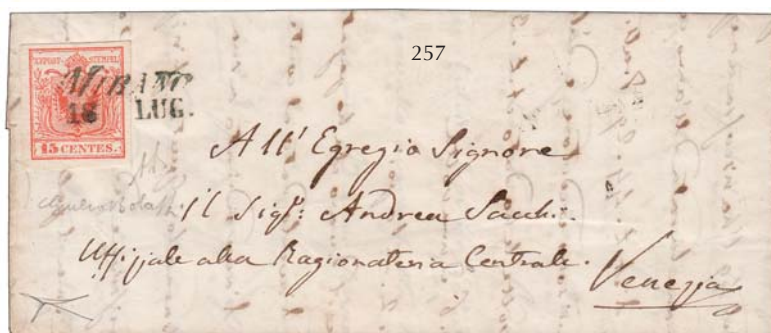 257
KKPOST-STEMPEL
MIRANO
18 LUG.
15 CENTES.
All' Egregio Signore
il Sigr: Andrea Sacchi
Uffiziale alla Ragionateria Centrale.
Venezia